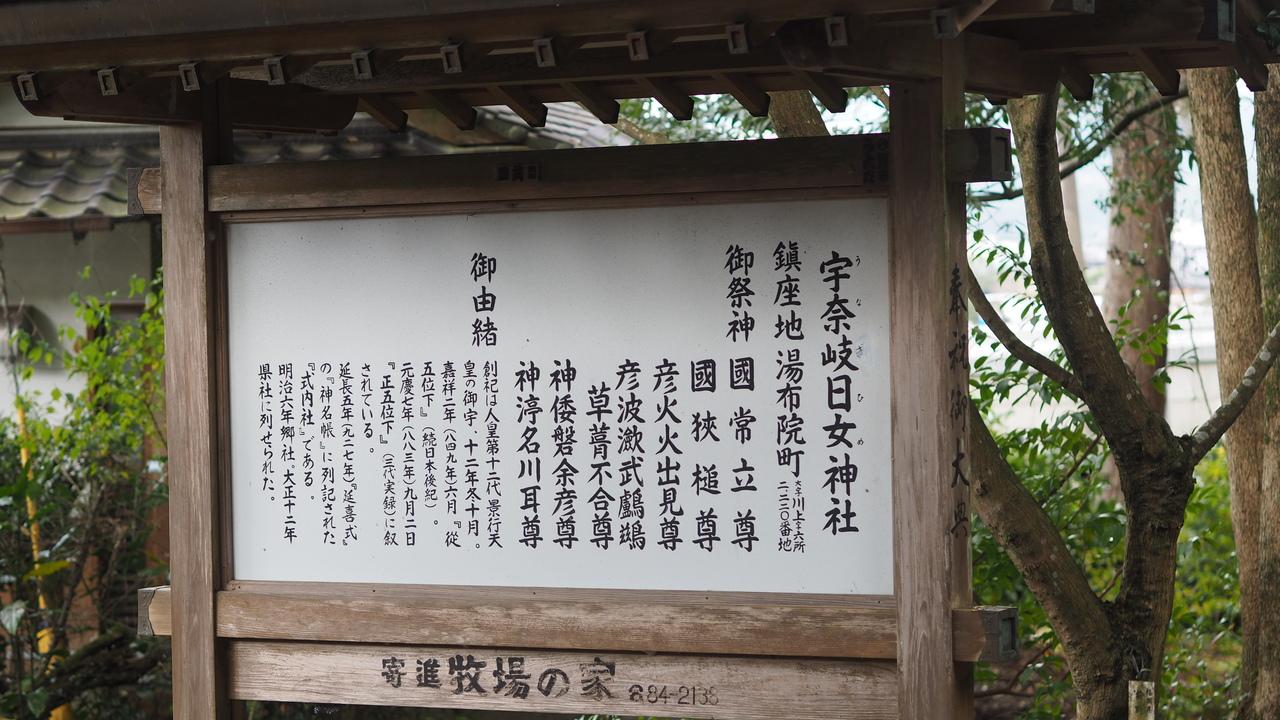 宇奈岐日女神社
うなぎひめ
鎮座地 湯布院町 大字川上字六所 二二二〇番地
御祭神 國常立尊
國狭槌尊
彦火火出見尊
彦波瀲武鸕鶿
草葺不合尊
神倭磐余彦尊
神渟名川耳尊
御由緒
創祀は人皇第十二代 景行天
皇の御宇、十二年冬十月。
嘉祥二年(八四九年)六月『從
五位下』(続日本後紀)。
元慶七年(八八三年)九月二日
『正五位下』(三代実録)に叙
されている。
延長五年(九二七年)『延喜式』
の『神名帳』に列記された
『式内社』である。
明治六年郷社。大正十二年
県社に列せられた。
奉祝御大典
寄進 牧場の家 ☎84-2138